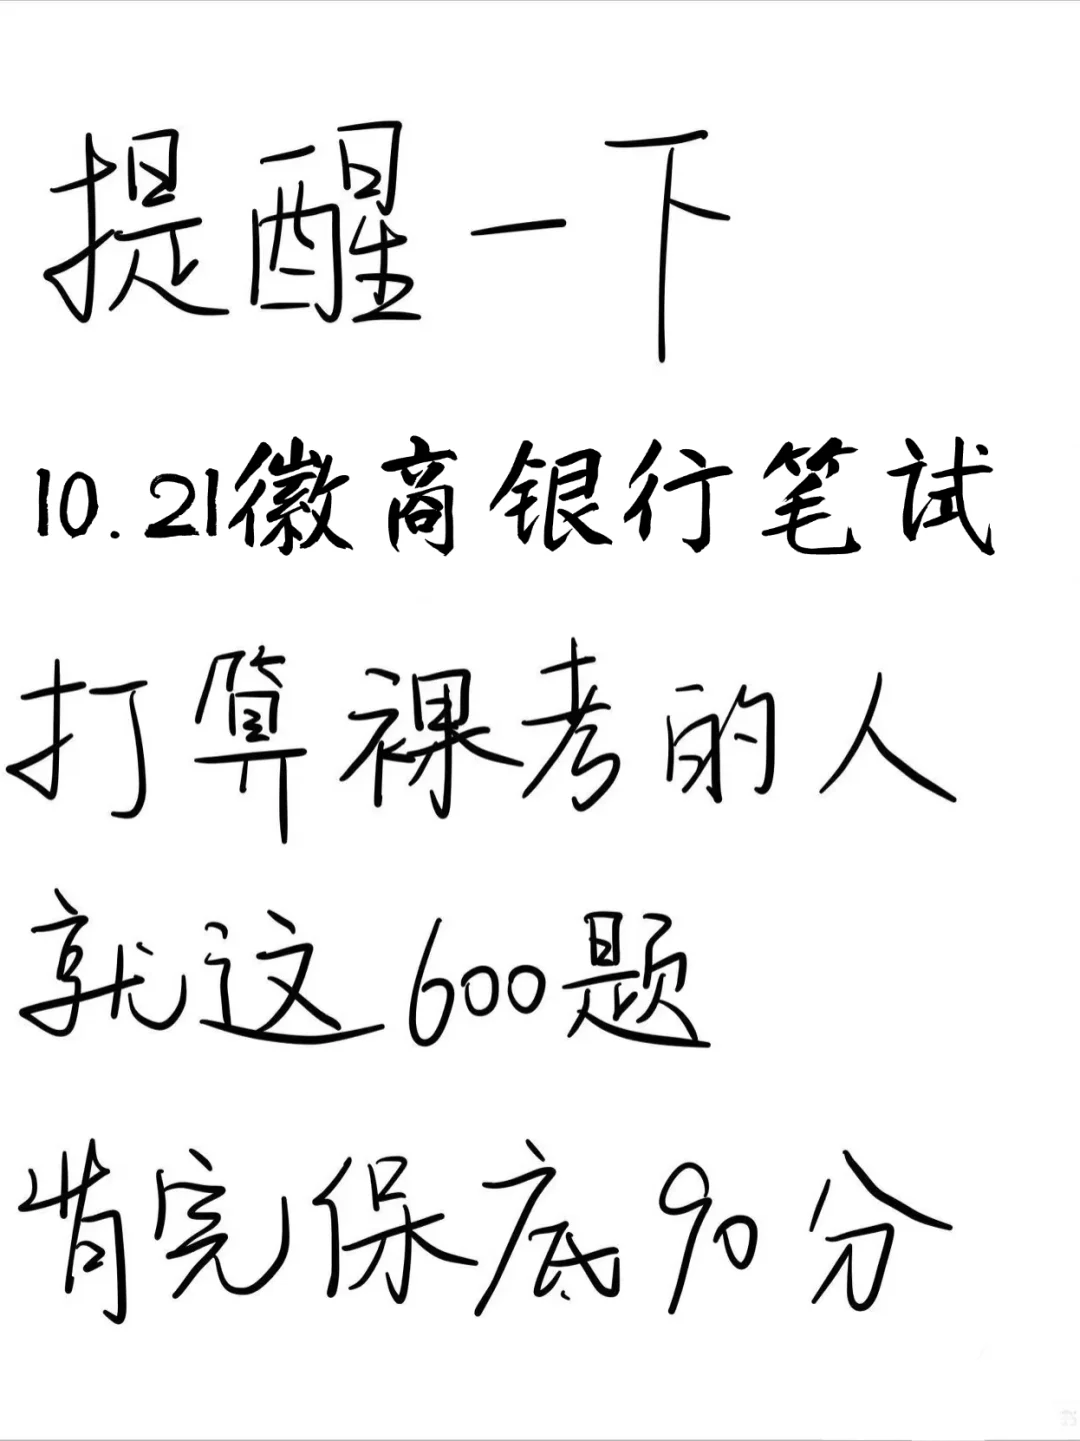 提醒一下
10.21徽商银行笔试
打算裸考的人
就这600题
背完保底90分